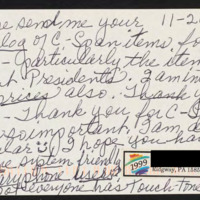 se send me your 11-2
log of C-Span items, fr
- Particularly the item
t Presidents. I am in
prices also. Thank
- Thank you for C-S
so important. I am a
lar I hope you ha
e system friendly
ary phone users
not everyone has touch-tone
1999
Ridgway, PA 158